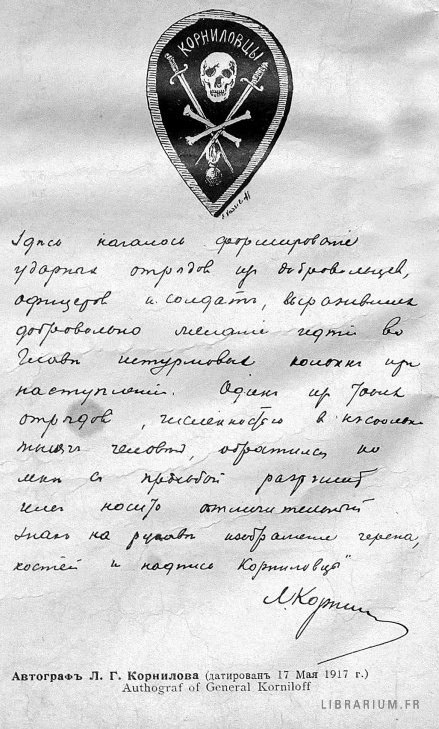 КОРНИЛОВЦЫ
Здѣсь началось формированіе
ударныхъ отрядовъ изъ добровольцевъ,
офицеровъ и солдатъ, выразившихъ
добровольно желаніе идти во
главѣ штурмовыхъ колоннъ при
наступленіи. Одинъ изъ такихъ
отрядовъ, численностью в нѣсколько
тысячъ человѣкъ, обратился ко
мнѣ съ просьбой разрѣшить
имъ носить отличительный
знакъ на рукавѣ изображеніе черепа,
костей и надпись Корниловцы"
Л. Корнилов
Автографъ Л. Г. Корнилова (датированъ 17 Мая 1917 г.)
Authograf of General Korniloff
LIBRARIUM.FR